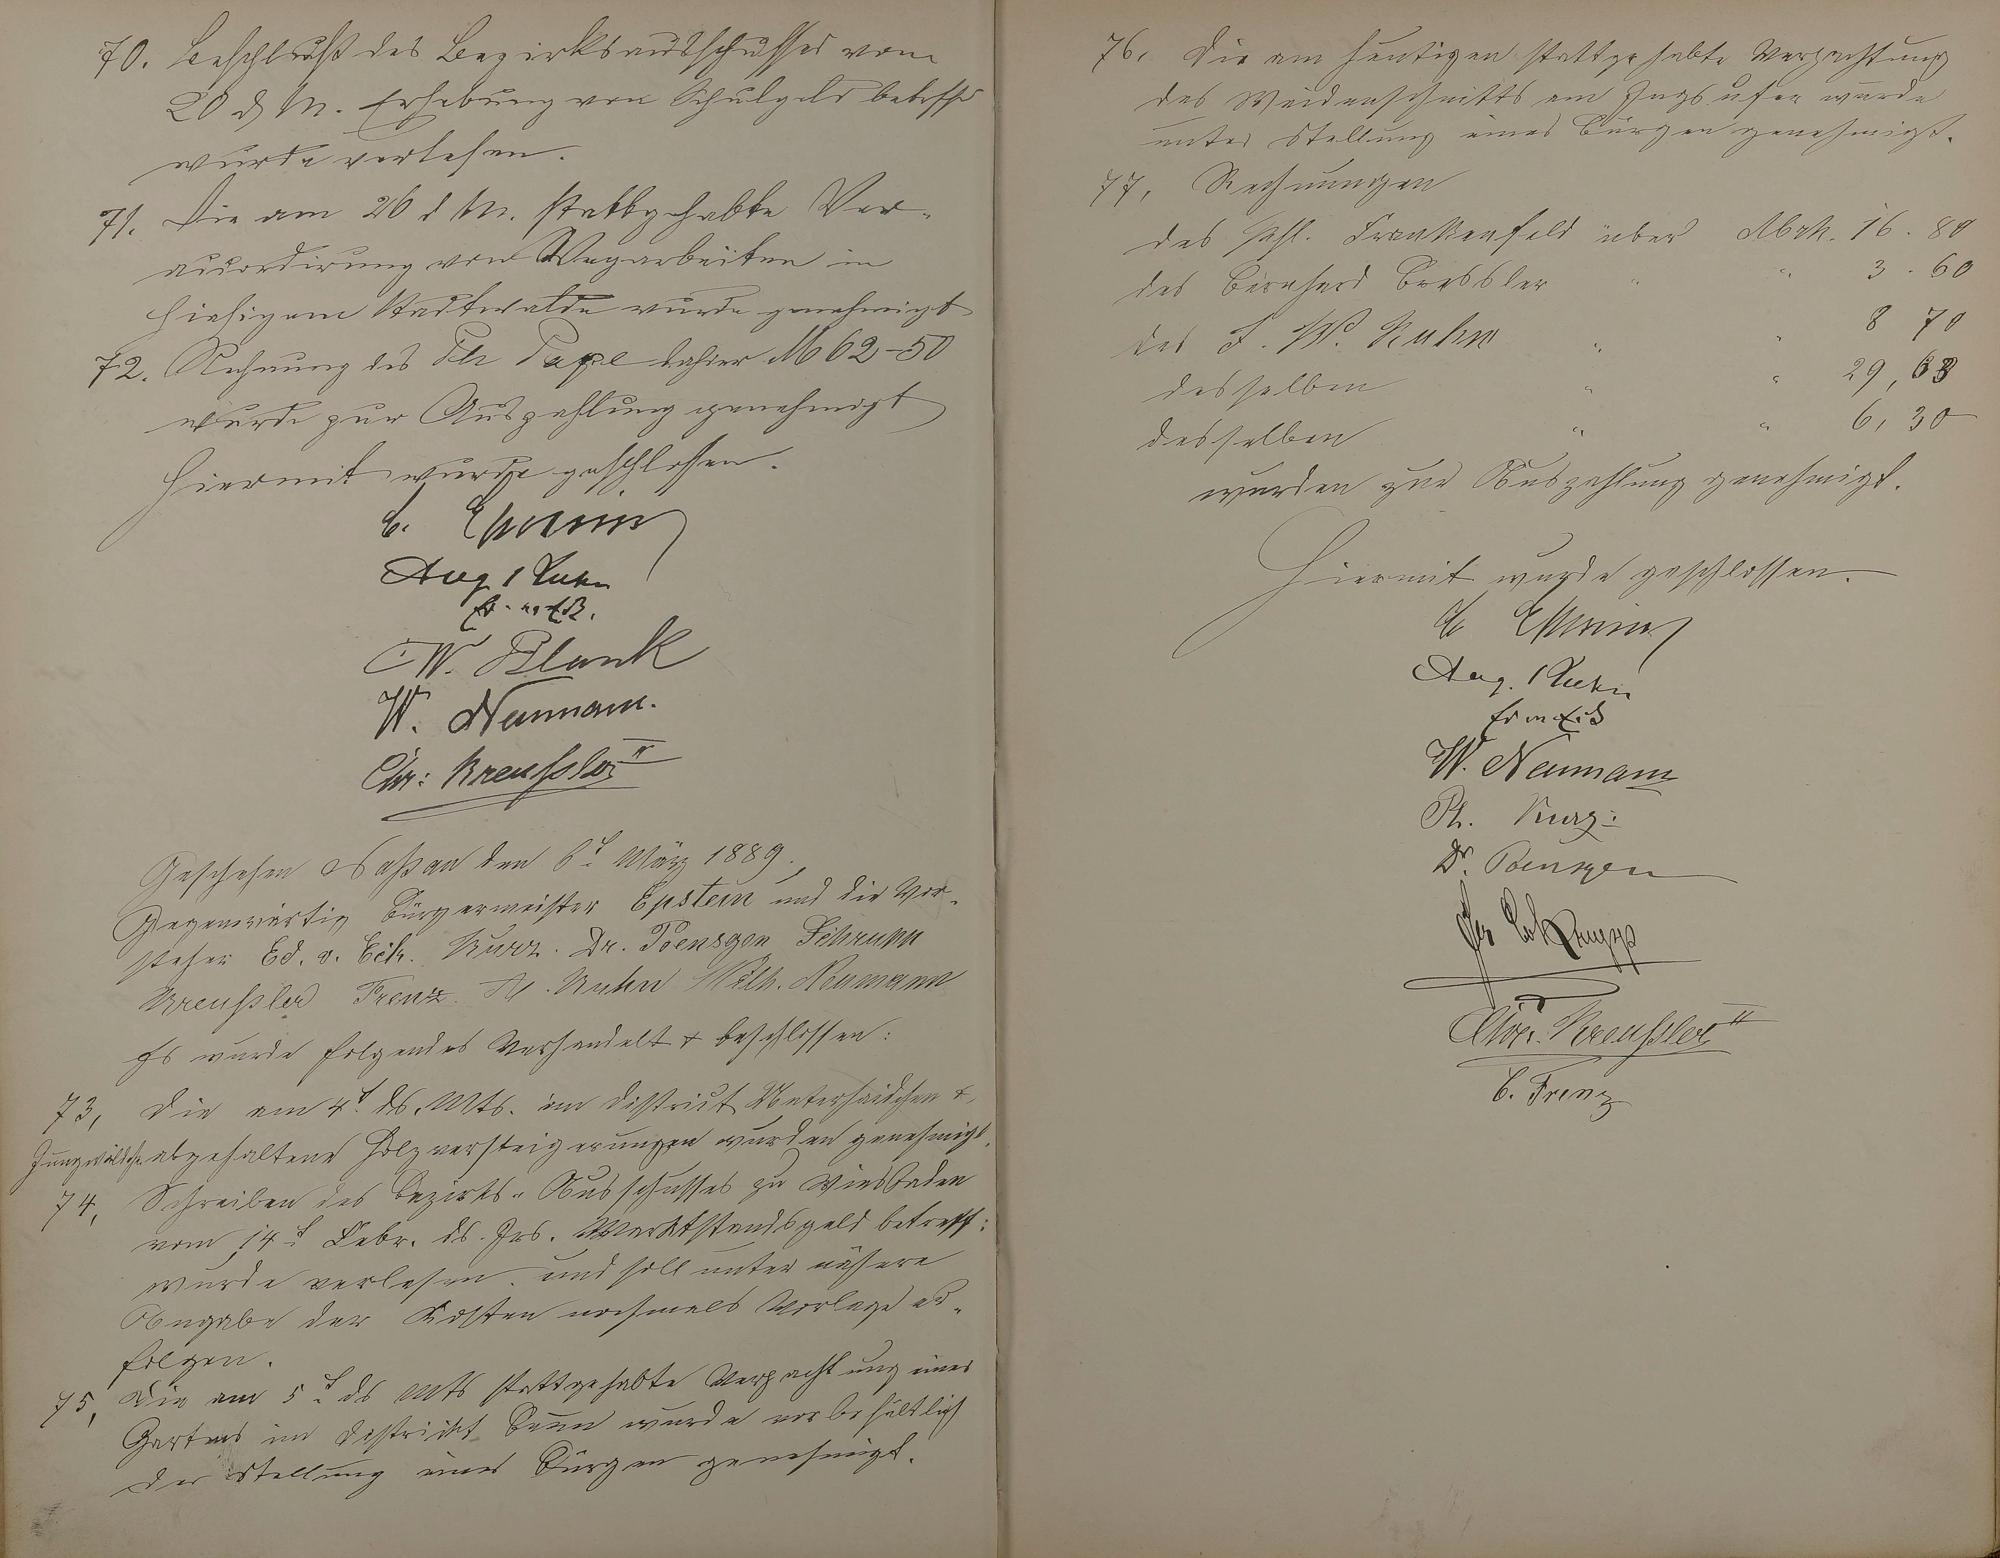 70. Beschluß des Bezirksausschusses vom
20 d M. Erhebung von Schulgeld betreffd
wurde verlesen.
71. Die am 26 d M. stattgehabte Ver-
accordirung von Wegarbeiten in
hiesigem Stadtwalde wurde genehmigt
72. Rechnung des Pape dahier M 62-50
wurde zur Auszahlung genehmigt
Hiermit wurde geschlossen.
Aug. Kuhn
W. Blank
W. Neumann.
Chr: Kreußler II
Geschehen Naßau den 6t. März 1889.
Gegenwärtig Bürgermeister Epstein und die Vor-
steher Ed. v. Eck. Kurz. Dr. Poensgen
Kreußler Frenz. A. Kuhn Wilh. Neumann
Es wurde folgendes Verhandelt & beschlossen:
73, Die am 4t. ds. Mts. im District &
abgehaltene Holzversteigerungen wurden genehmigt.
74, Schreiben des Bezirks-Ausschusses zu Wiesbaden
vom 14t. Febr. ds. Jrs. Marktstandsgeld betreff:
wurde verlesen und soll unter nähere
Angabe der Kosten nochmals Vorlage er-
folgen.
75, Die am 5t. ds Mts stattgehabte Verpachtung eines
Gartens im District wurde vorbehältlich
der Stellung eines Bürgen genehmigt.
76. Die am heutigen stattgehabte Verpachtung
des Weidenschnitts am wurde
unter Stellung eines Bürgen genehmigt.
77, Rechnungen
des Frankenfeld über Mrk. 16. 89
des Bernhard " " 3. 60
des F. W. Kuhn " " 8 70
desselben " " 29,
desselben " " 6, 30
wurden zur Auszahlung genehmigt.
Hiermit wurde geschlossen.
Aug. Kuhn
W. Neumann
Ph. Kurz.
Dr. Poensgen
Chr. Kreußler II
C. Frenz